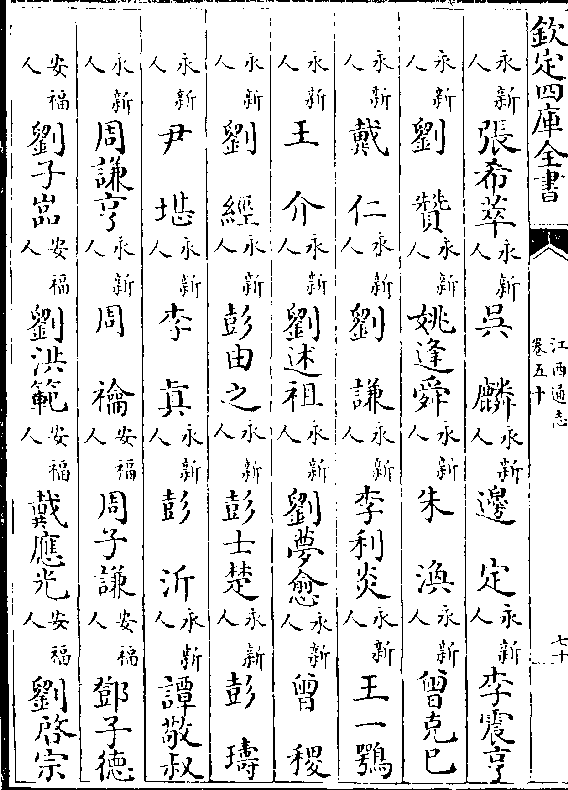 欽定四庫全書
江西通志
卷五十
七十
永新人張希萃永新人吳麟永新人邊定永新人李震亨
永新人劉贊永新人姚逢舜永新人朱渙永新人曾克巳
永新人戴仁永新人劉謙永新人李利炎永新人王一鶚
永新人王介永新人劉述祖永新人劉夢愈永新人曾稷
永新人劉經永新人彭由之永新人彭士楚永新人彭璹
永新人尹堪永新人李真永新人彭沂永新人譚敬叔
永新人周謙亨永新人周禴安福人周子謙安福人鄧子德
安福人劉子嵓安福人劉洪範安福人戴應光安福人劉啓宗